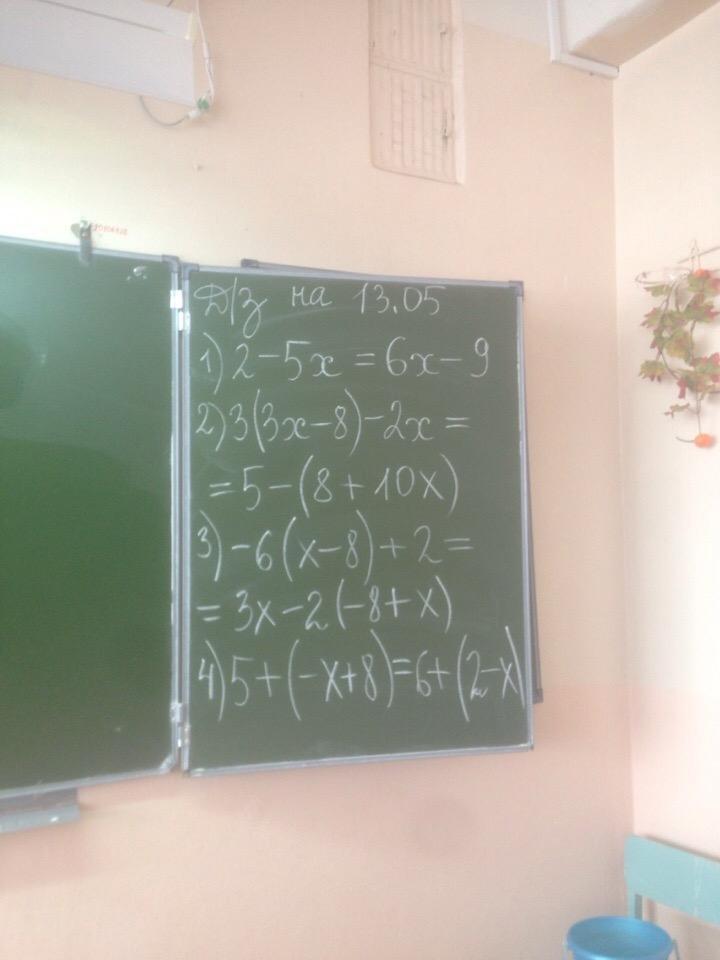 Д/з на 13.05
1) 2-5x = 6x-9
2) 3(3x-8)-2x =
= 5-(8+10x)
3) -6(x-8)+2=
= 3x-2(-8+x)
4) 5+(-x+8)=6+(2-x)